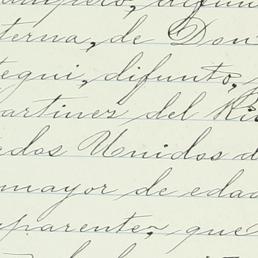 ampero, difun
terna, de Don
tegui, difunto,
artinez del Ri
ados Unidos d
mayor de edad
aparente, que